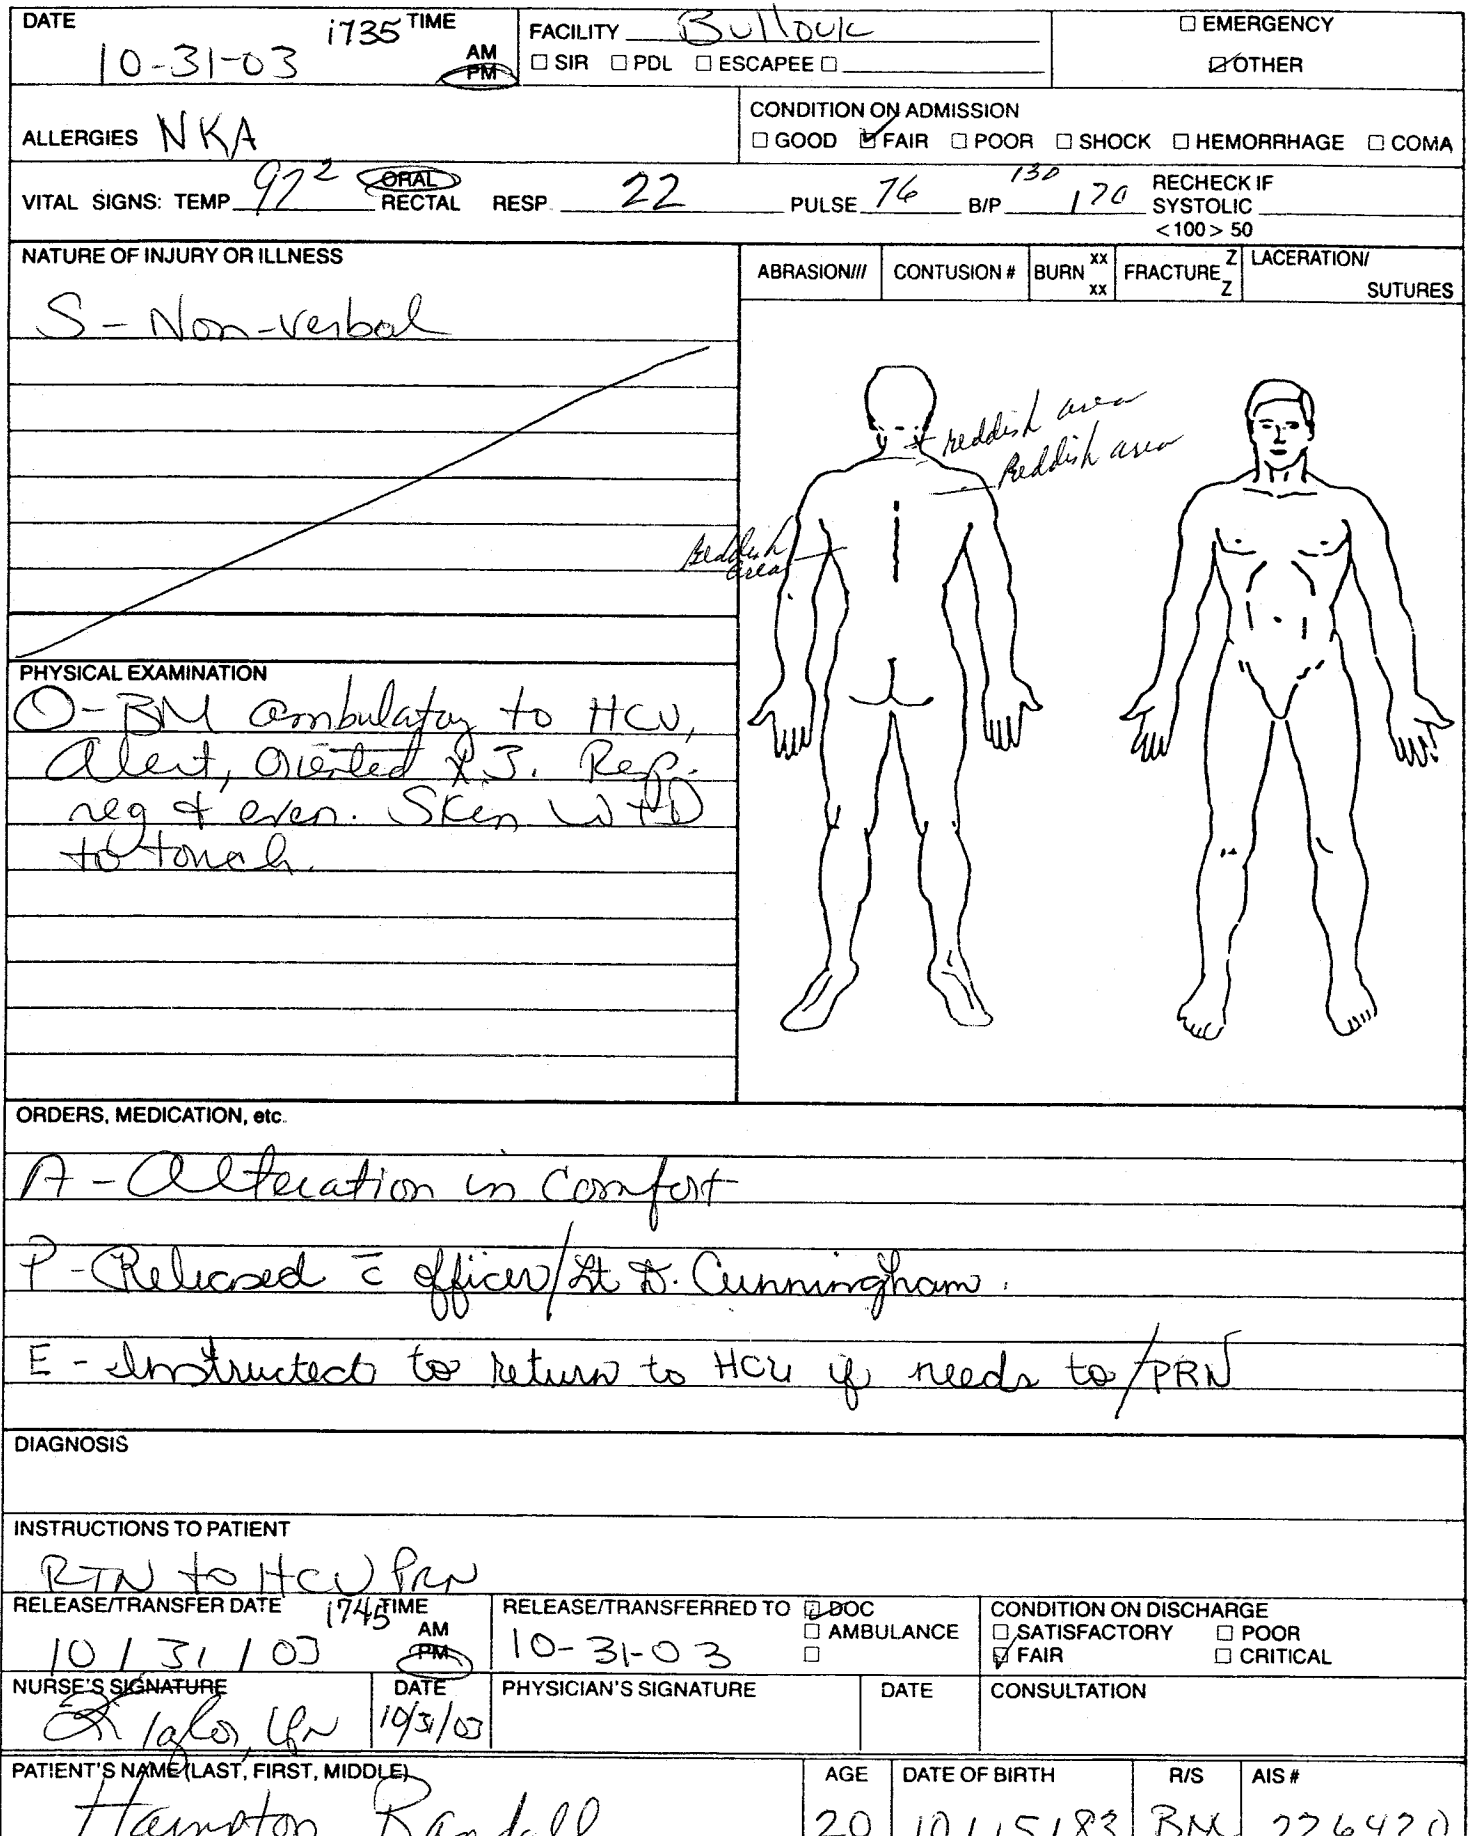 DATE 10-31-03 1735 TIME AM PM
FACILITY Bullock
☐ SIR ☐ PDL ☐ ESCAPEE ☐
☐ EMERGENCY
☑ OTHER
ALLERGIES NKA
CONDITION ON ADMISSION
☐ GOOD ☑ FAIR ☐ POOR ☐ SHOCK ☐ HEMORRHAGE ☐ COMA
VITAL SIGNS: TEMP 97² ORAL RECTAL RESP. 22 PULSE 76 B/P 130 / 70 RECHECK IF SYSTOLIC <100> 50
NATURE OF INJURY OR ILLNESS
S - Non-verbal
ABRASION/// CONTUSION # BURN xx xx FRACTURE Z Z LACERATION/ SUTURES
reddish area
Reddish area
Reddish
area
PHYSICAL EXAMINATION
O- BM ambulatory to HCU,
Alert, oriented x 3. Resp.
reg + even. Skin W+D
to touch.
ORDERS, MEDICATION, etc.
A - Alteration in Comfort
P - Released c̄ officer/Lt D. Cunningham.
E - Instructed to return to HCU if needs to/PRN
DIAGNOSIS
INSTRUCTIONS TO PATIENT
RTN to HCU PRN
RELEASE/TRANSFER DATE 10 / 31 / 03 1745 TIME AM PM
RELEASE/TRANSFERRED TO ☑ DOC
☐ AMBULANCE
☐
10-31-03
CONDITION ON DISCHARGE
☐ SATISFACTORY ☐ POOR
☑ FAIR ☐ CRITICAL
NURSE'S SIGNATURE LPN
DATE 10/31/03
PHYSICIAN'S SIGNATURE DATE CONSULTATION
PATIENT'S NAME (LAST, FIRST, MIDDLE) AGE DATE OF BIRTH R/S AIS #
Hampton Randall 20 10/15/83 BM 226420